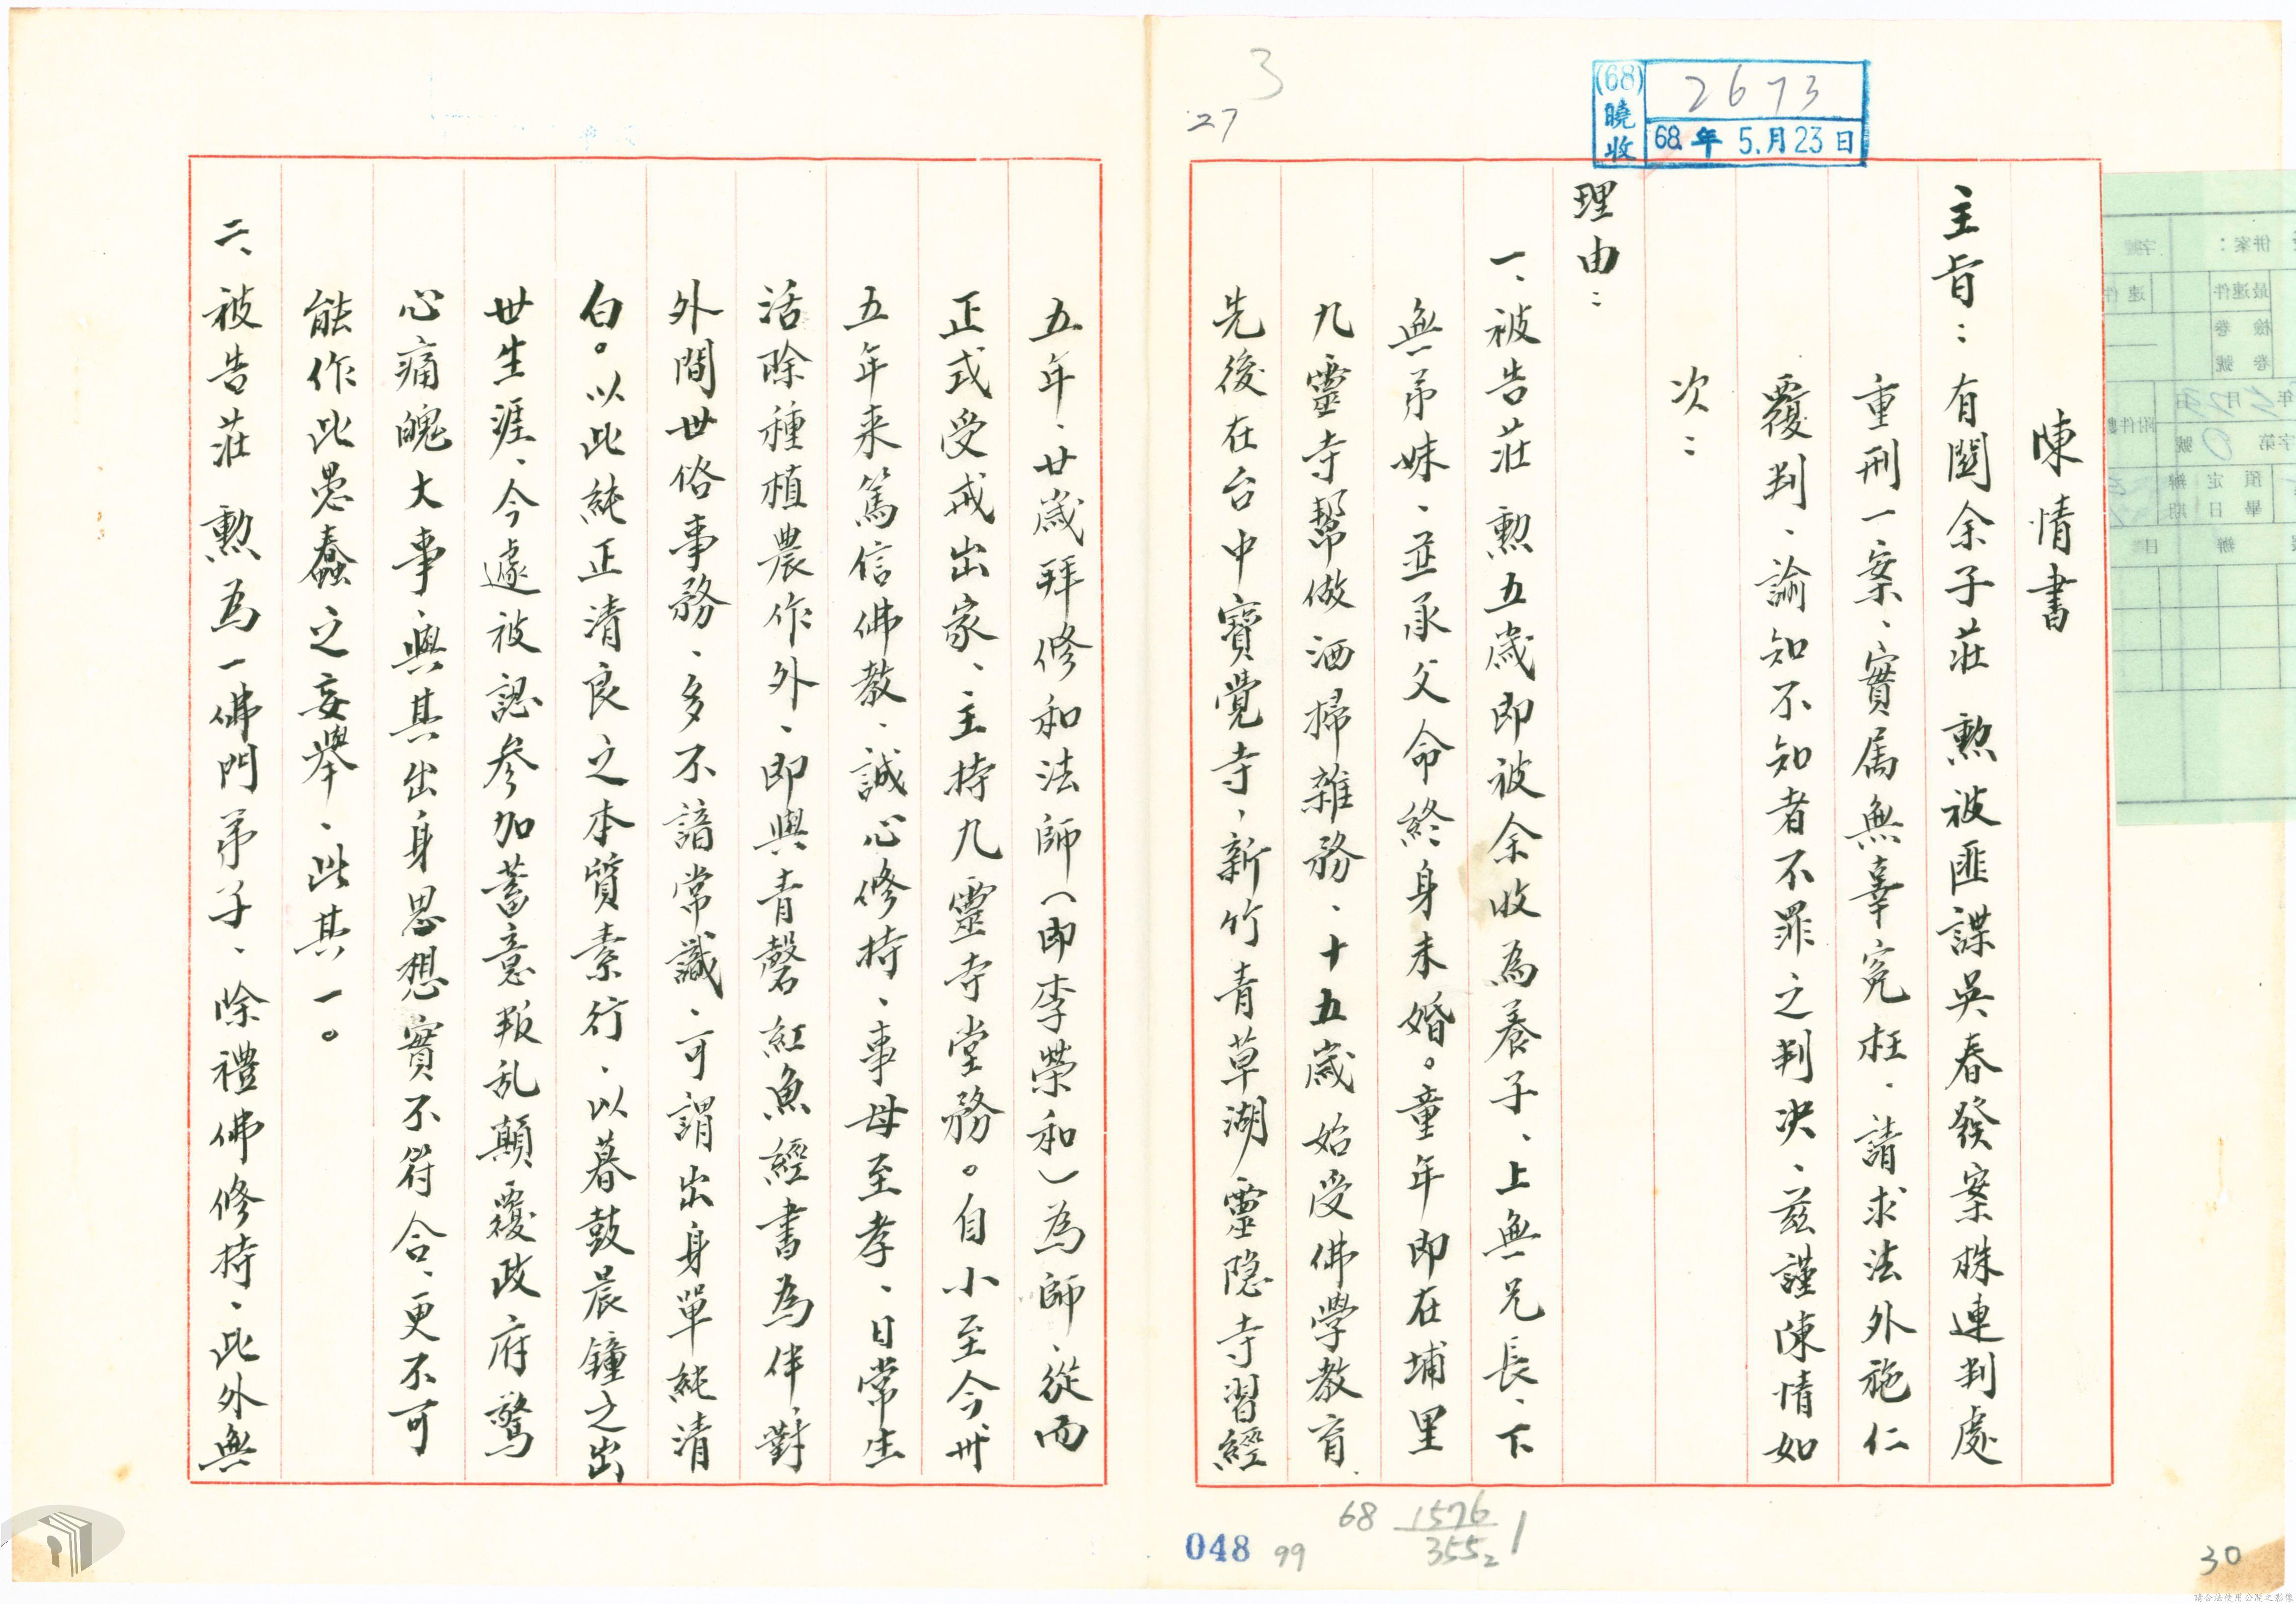 3
27
(68)曉收
2673
68.年5.月23日
陳情書
主旨：有關余子莊 勲被匪諜吳春發案株連判處
重刑一案、實属無辜寃枉、請求法外施仁
覆判、諭知不知者不罪之判决、茲謹陳情如
次：
理由：
一、被告莊 勲五歲即被余收為養子、上無兄長、下
無弟妹、並承父命終身未婚。童年即在埔里
九靈寺幫做洒掃雜務、十五歲始受佛學教育
先後在台中寶覺寺、新竹青草湖靈隐寺習經
五年、廿歲拜修和法師（即李榮和）為師、從而
正式受戒出家、主持九靈寺堂務。自小至今卅
五年来篤信佛教、誠心修持、事母至孝、日常生
活除種植農作外、即與青磬紅魚經書為伴、對
外間世俗事務、多不諳常識、可謂出身單純清
白。以此純正清良之本質素行、以暮鼓晨鐘之出
世生涯、今遽被認参加蓄意叛乱顛覆政府驚
心痛魄大事、與其出身思想實不符合、更不可
能作此愚蠢之妄舉、此其一。
二、被告莊 勲為一佛門弟子、除禮佛修持、此外無
048
99
68 1576/3552 1
30
併案：
字號
最速件
速件
檢卷
卷號
附件
字第0號
預定辦
畢日期
請合法使用公開之影像